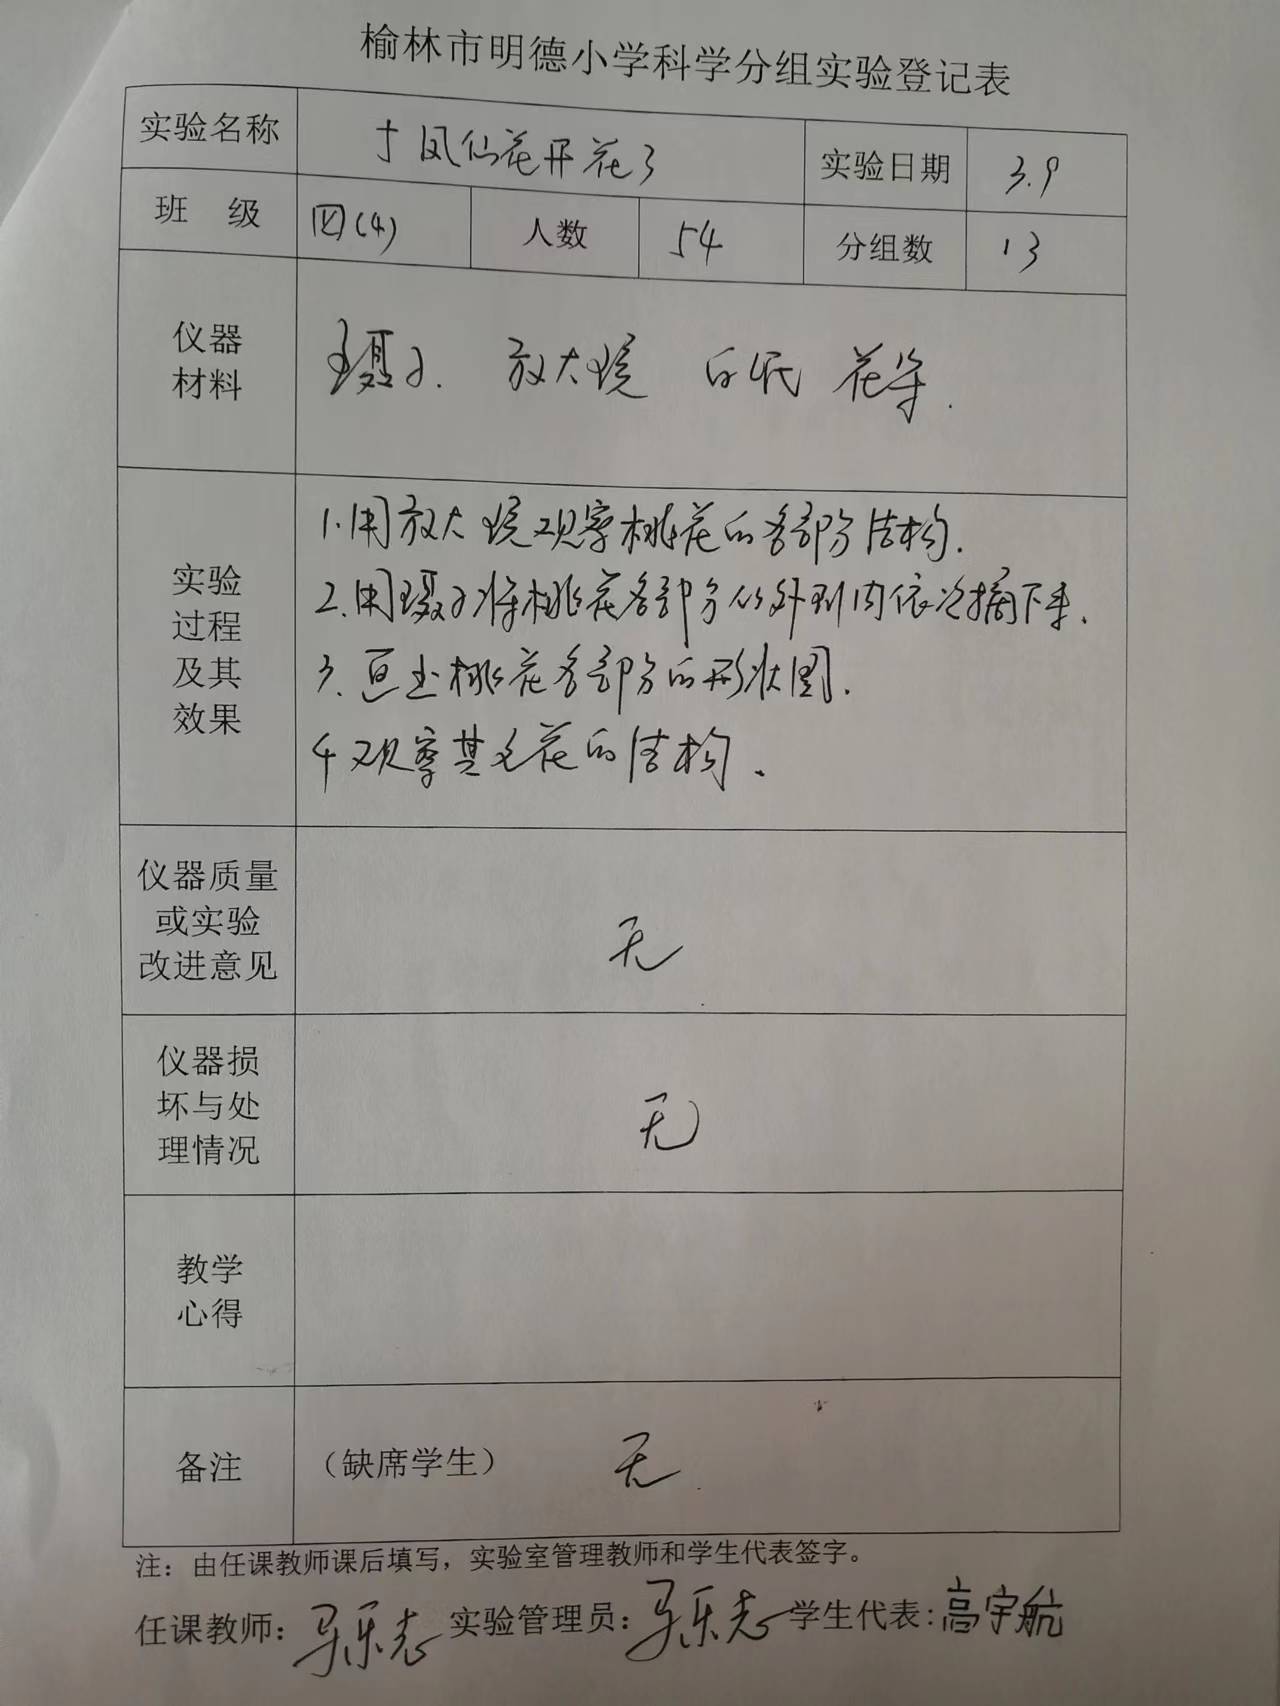 榆林市明德小学科学分组实验登记表
实验名称 5 凤仙花开花了 实验日期 3.9
班 级 四(4) 人数 54 分组数 13
仪器
材料
镊子. 放大镜 白纸 花朵.
实验
过程
及其
效果
1.用放大镜观察桃花的各部分结构.
2.用镊子将桃花各部分从外到内依次摘下来.
3.画出桃花各部分的形状图.
4 观察其它花的结构.
仪器质量
或实验
改进意见
无
仪器损
坏与处
理情况
无
教学
心得
备注 （缺席学生） 无
注：由任课教师课后填写，实验室管理教师和学生代表签字。
任课教师：马乐志 实验管理员：马乐志 学生代表：高宇航